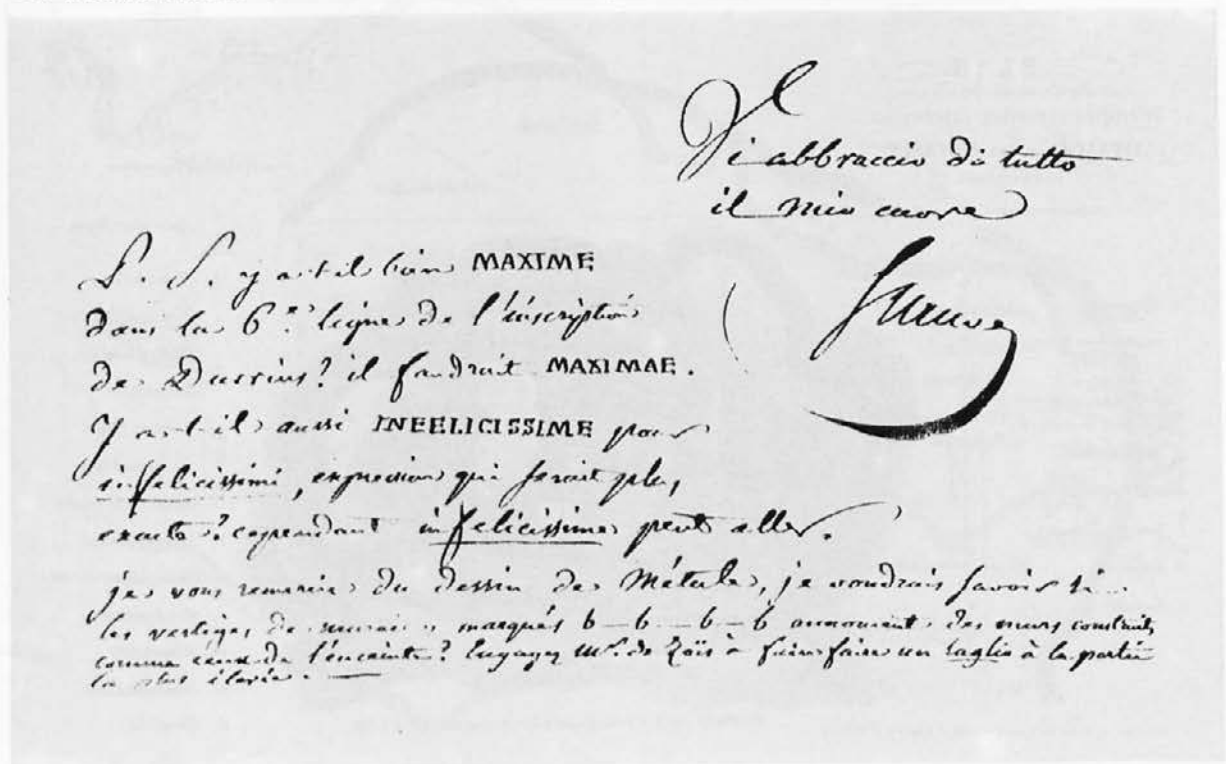 Vi abbraccio di tutto
il mio cuore
Siauve
P. S. y a-t-il bien MAXIME
dans la 6.e ligne de l'inscription
de Dussius? il faudrait MAXIMAE.
Y a-t-il aussi INFELICISSIME pour
infelicissimi, expression qui serait plus
exacte? cependant infelicissime peut aller.
je vous remercie du dessin de Métule, je voudrais savoir si
les vestiges de murs marqués b—b—b—b annoncent des murs construits
comme ceux de l'enceinte? Engagez Mr. de Zoïs à faire faire un taglio à la partie
la plus élevée.